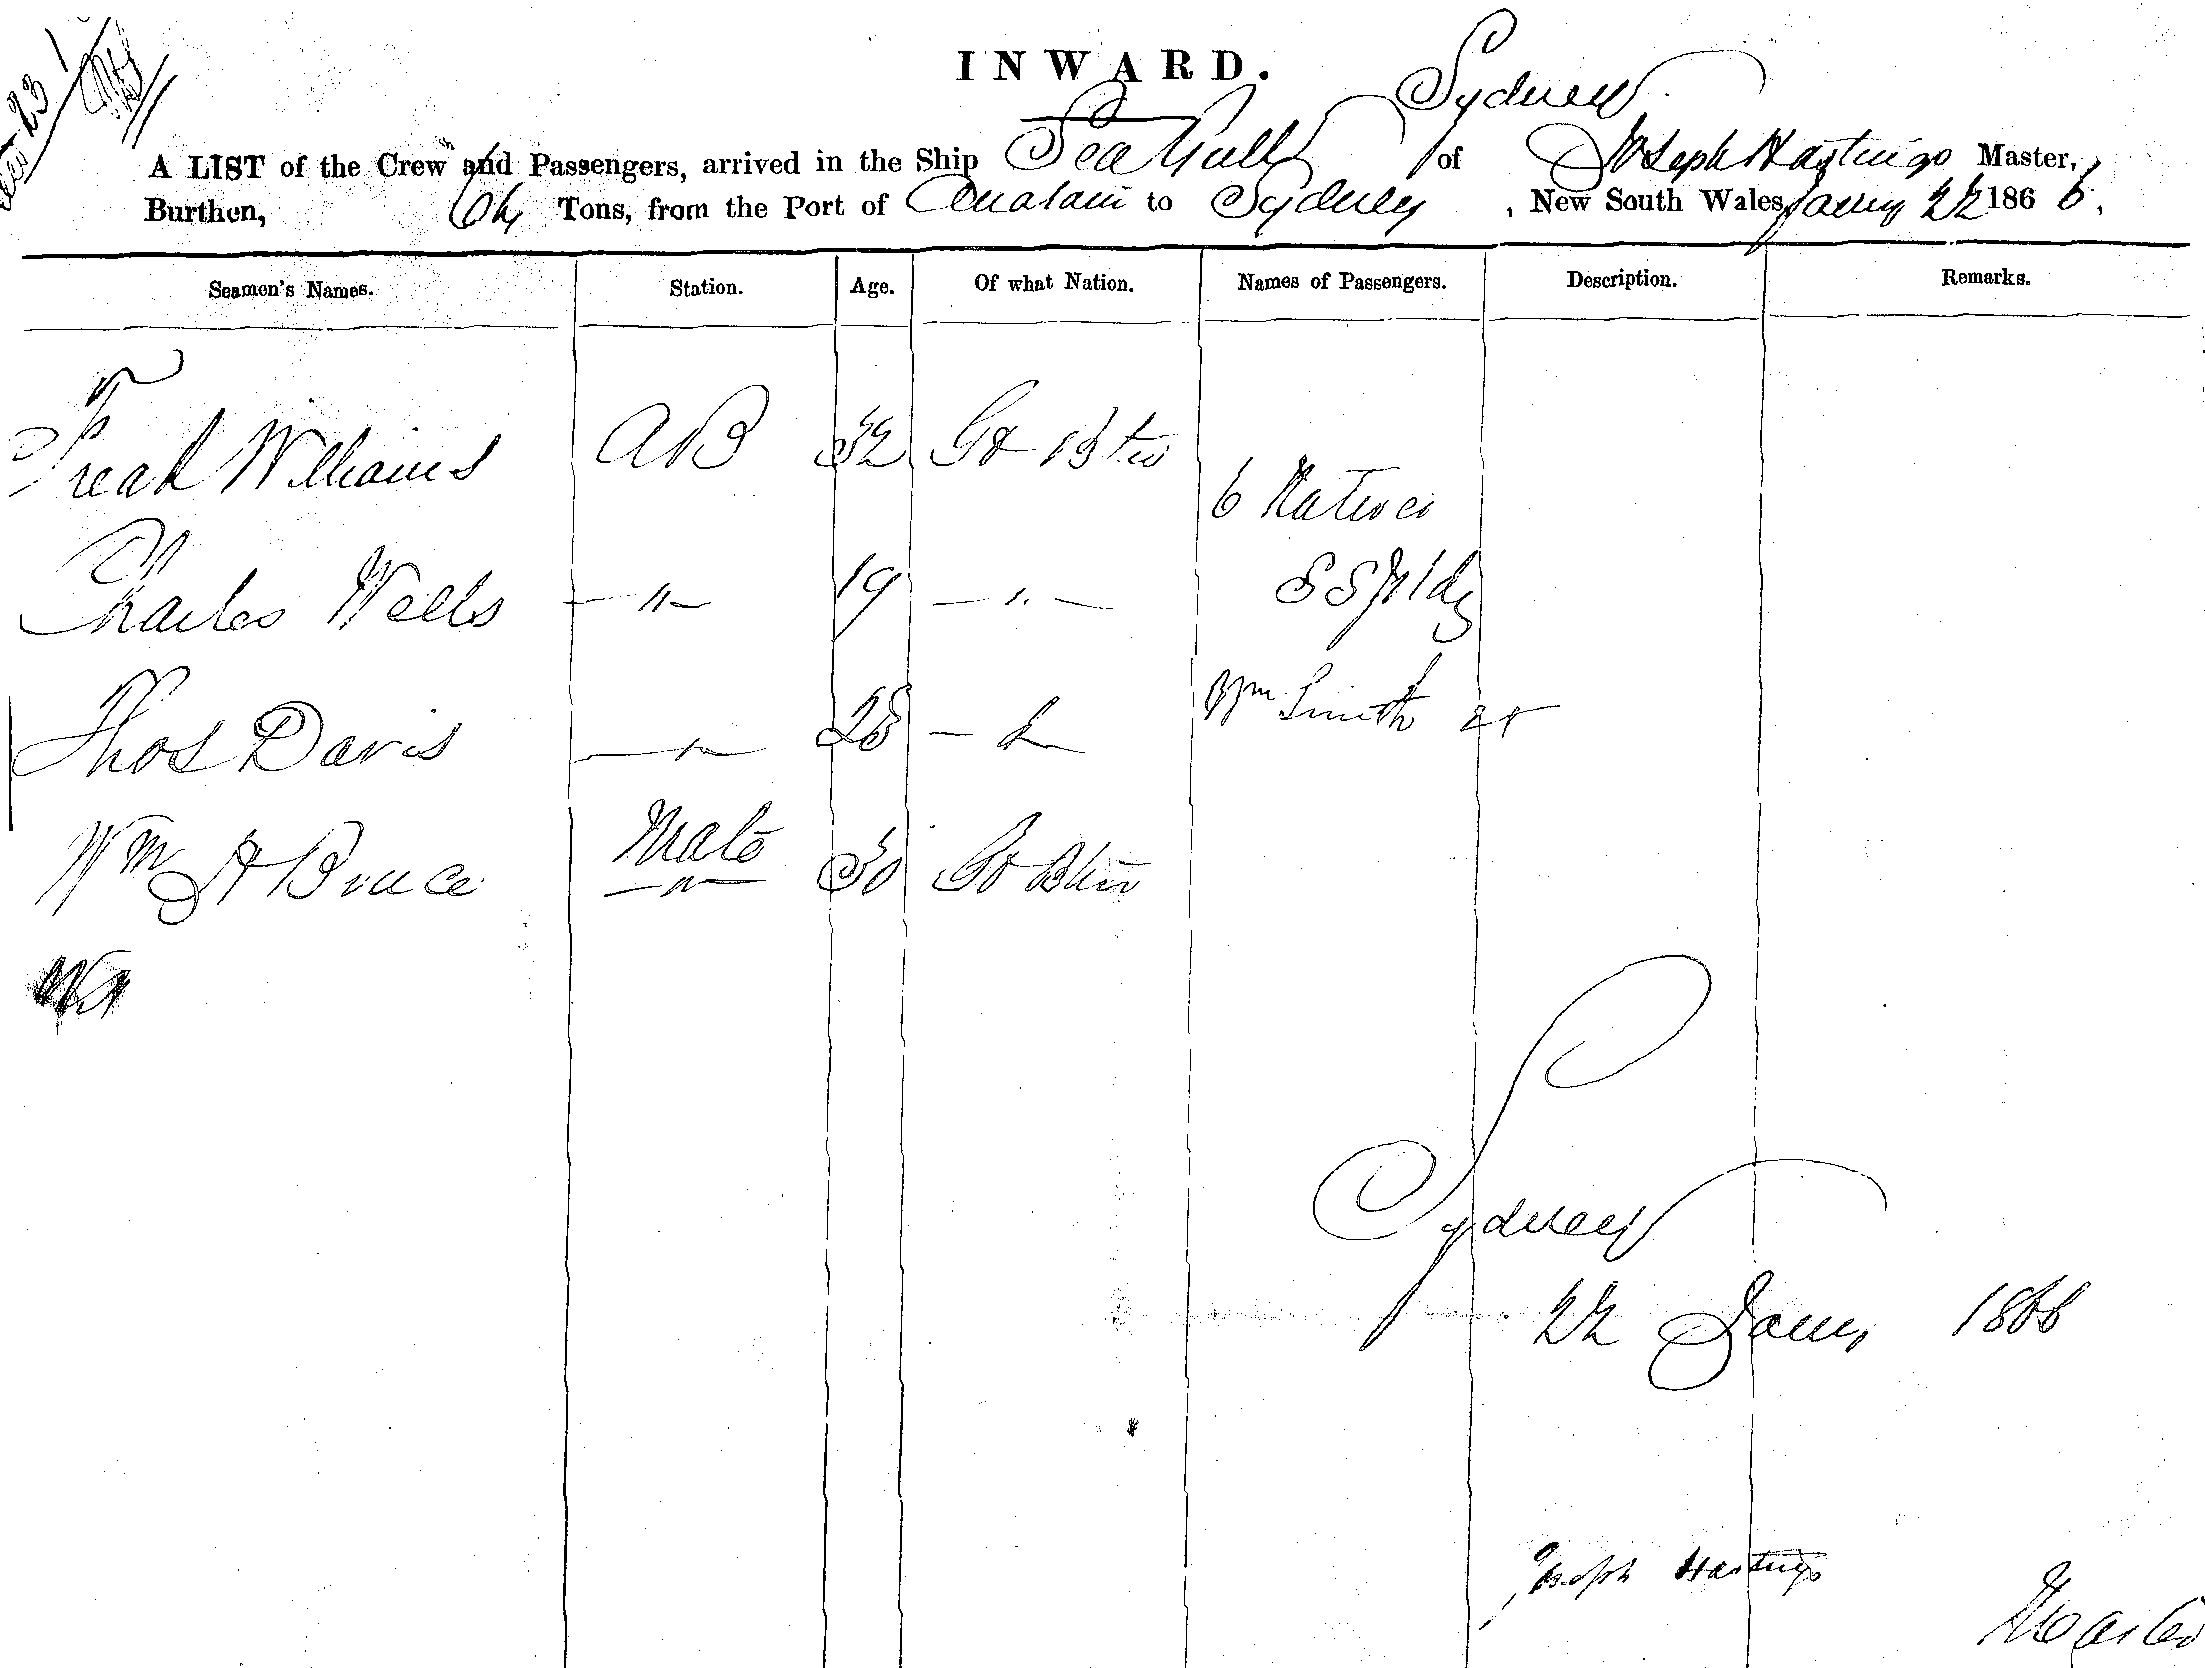 23
INWARD.
Sydney
A LIST of the Crew and Passengers, arrived in the Ship Sea Gull of Joseph Hastings Master,
Burthen, 64 Tons, from the Port of to Sydney , New South Wales, 22 1866.
Seamen's Names. Station. Age. Of what Nation. Names of Passengers. Description. Remarks.
Fread Williams AB 32 Gt
6 Natives
Charles Wells -"- 19 -"-
S S
Thos Davis -"- 28 -
Wm Smith
Wm H Bruce Mate 30 Gt
-"-
Sydney
22 1866
Joseph Hastings
Master